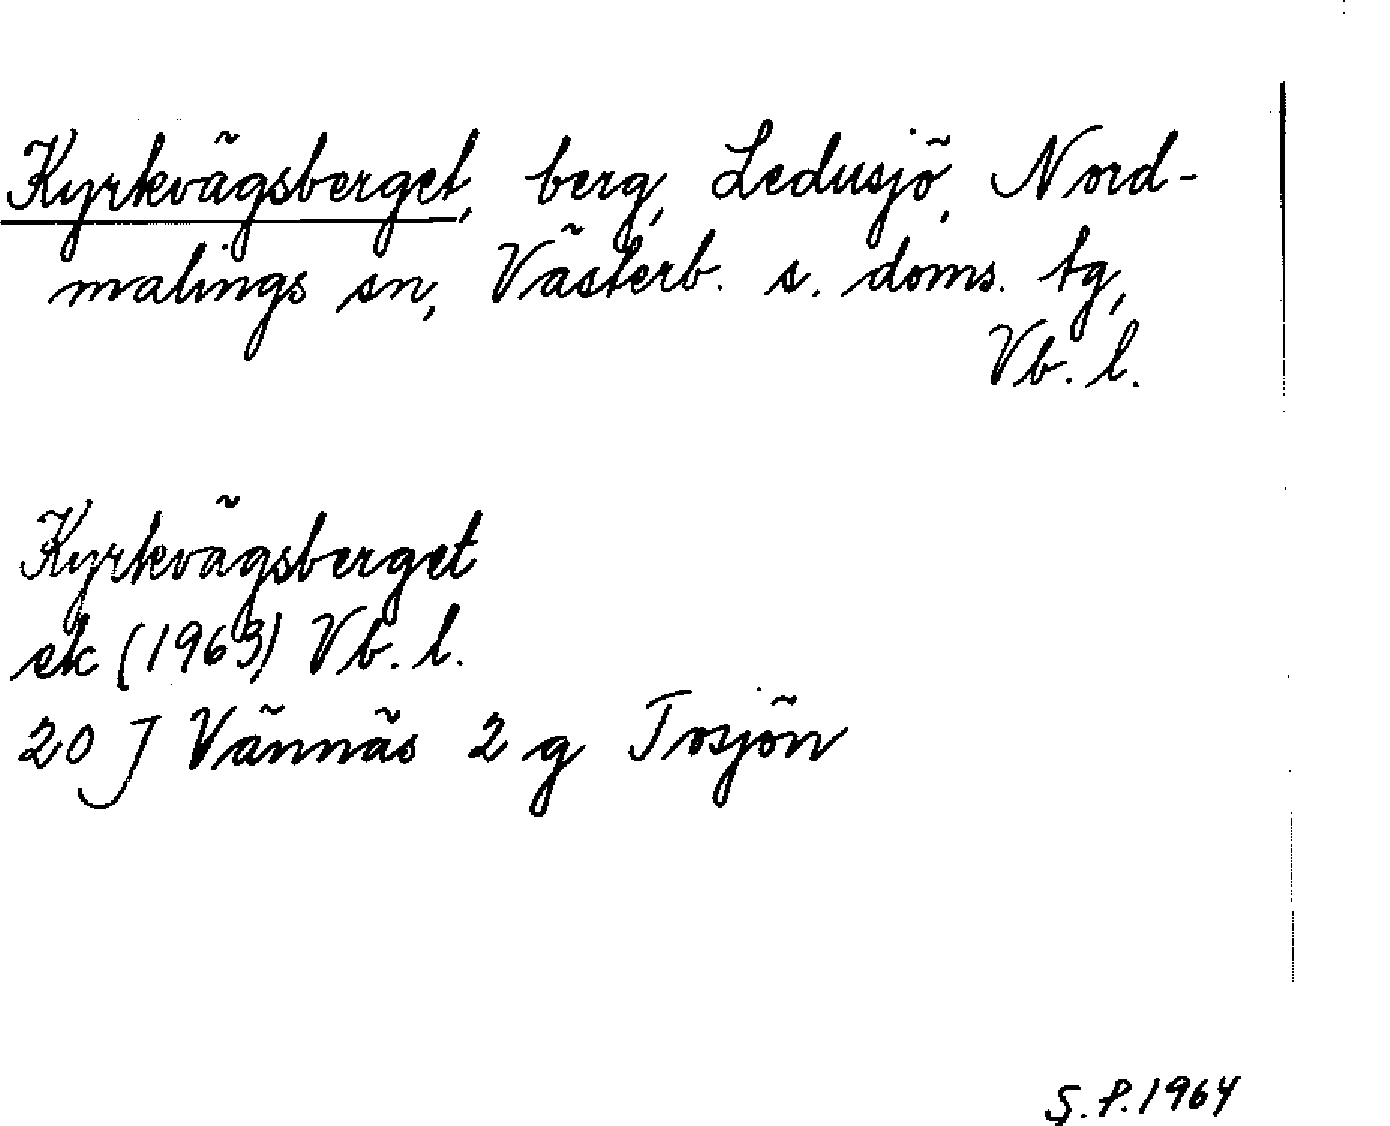 Kyrkvägsberget, berg, Ledusjö, Nord-
malings sn, Västerb. s. doms. tg,
Vb. l.
Kyrkvägsberget
ek (1963) Vb. l.
20 J Vännäs 2 g Tosjön
S. P. 1964